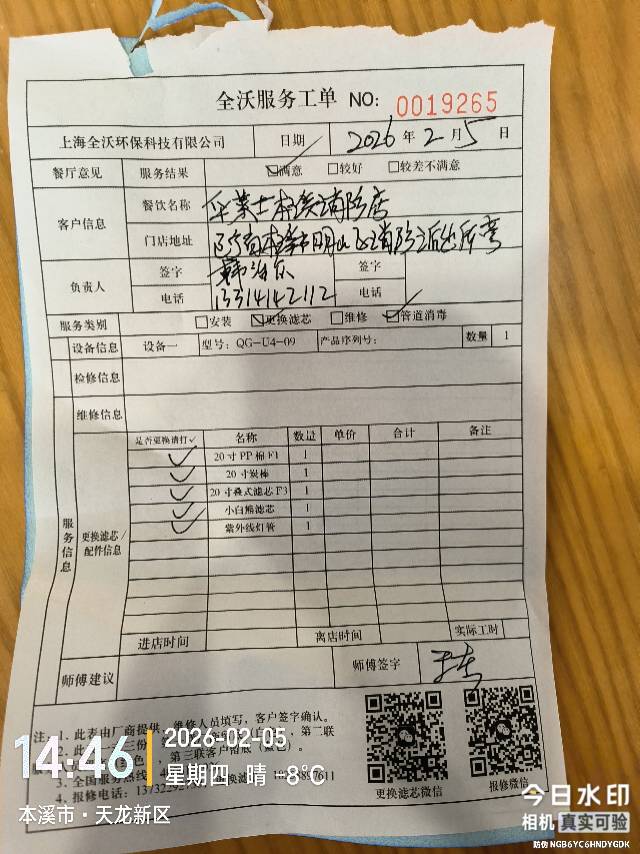 全沃服务工单 NO: 0019265
上海全沃环保科技有限公司 日期 2026 年 2 月 5 日
餐厅意见 服务结果 ☑满意 □较好 □较差不满意
客户信息 餐饮名称 华莱士本溪消防店
门店地址
负责人 签字 签字
电话 13314142112 电话
服务类别 □安装 ☑更换滤芯 □维修 ☑管道消毒
设备信息 设备一 型号: QG-U4-09 产品序列号: 数量 1
检修信息
维修信息
服务信息 更换滤芯/配件信息
是否更换请打✓ 名称 数量 单价 合计 备注
✓ 20寸PP棉F1 1
✓ 20寸炭棒 1
✓ 20寸叠式滤芯F3 1
✓ 小白熊滤芯 1
✓ 紫外线灯管 1
进店时间 离店时间 实际工时
师傅建议 师傅签字
注: 1. 此表由厂商提供, 维修人员填写, 客户签字确认。
2. 此 三份 第二联
第三联客户
3. 全国服务热线
4. 报修电话:
更换滤芯微信 报修微信
14:46 2026-02-05
星期四·晴 -8℃
本溪市·天龙新区
今日水印
相机 真实可验
防伪 NGB6YC6HNDYGDK